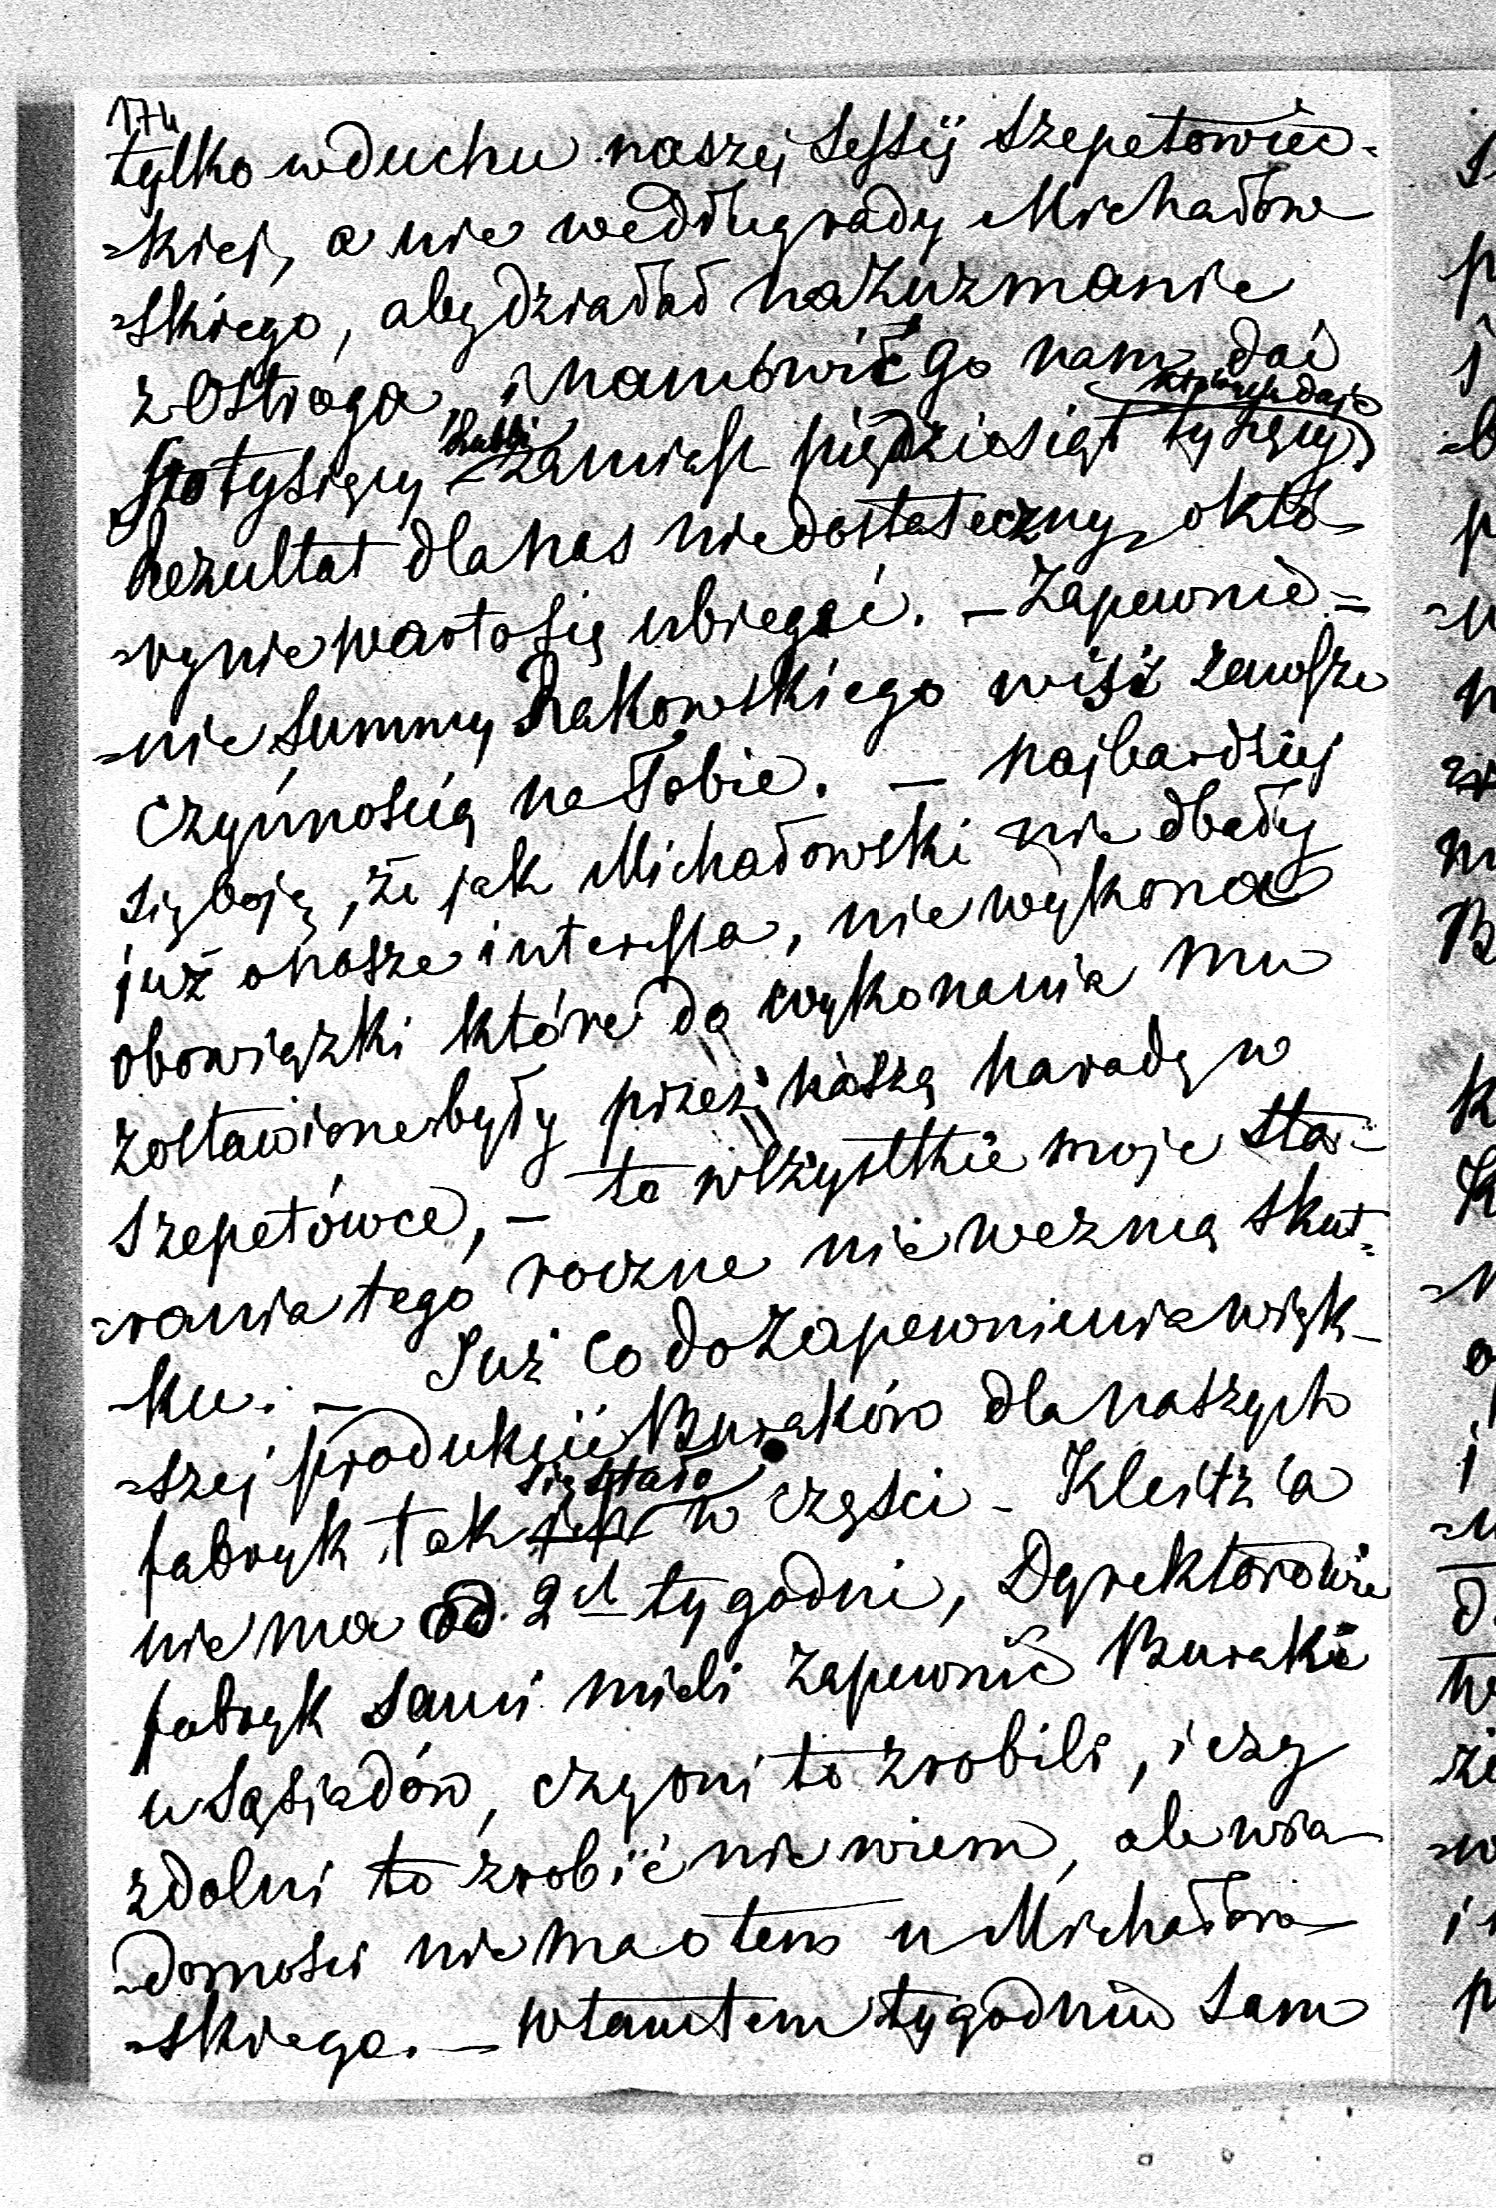 174
tylko w duchu naszej Sessij Szepetowiec-
=kiej, a nie według rady Michałow
=skiego, aby działać na Zuzmanie
z Ostroga, i namówić go nam dać
sto tysięcy Rubli zamiast pięćdziesiąt tysięcy, które daje
Rezultat dla nas niedostateczny, o któ-
=ry nie warto się ubiegać. – Zapewnie=
=nie Summy Rakowskiego wisi zawsze
czynnością na Tobie. – Najbardziej
się boję, że jak Michałowski nie dbały
już o nasze interessa, nie wykona
obowiązki które do wykonania mu
zostawione były przez naszą naradę w
Szepetówce, – to wszystkie moje sta-
=rania tego roczne nie wezmą skut=
-ku. – Już co do zapewnienia więk-
=szej produkcii Buraków dla naszych
fabryk, tak się stało w części – Kleitz'a
nie ma od 2ch tygodni, Dyrektorowie
fabryk sami mieli zapewnić Buraki
u Sąsiadów, czy oni to zrobili, i czy
zdolni to zrobić nie wiem, ale wia-
=domości nie ma o tem u Michałow-
=skiego. – W tamtem tygodniu sam